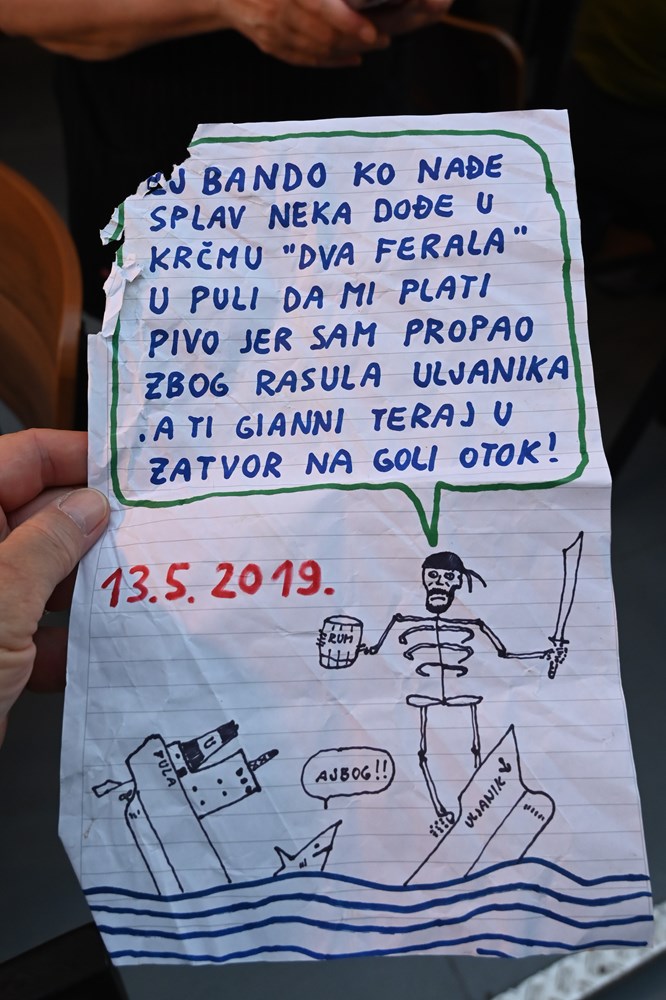 EJ BANDO KO NAĐE
SPLAV NEKA DOĐE U
KRČMU "DVA FERALA"
U PULI DA MI PLATI
PIVO JER SAM PROPAO
ZBOG RASULA ULJANIKA
.A TI GIANNI TERAJ U
ZATVOR NA GOLI OTOK!
13.5.2019.
RUM
U
PULA
AJBOG!!
ULJANIK